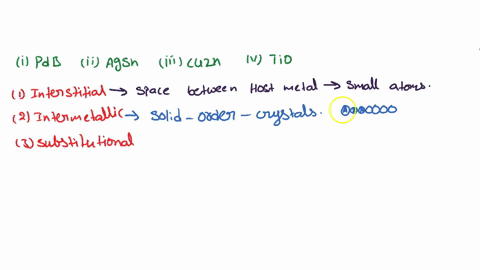 (i) PdB (ii) AgSn (iii) CuZn (iv) TiO
(1) Interstitial → Space between Host metal → Small atoms.
(2) Intermetallic → Solid-order-crystals.
(3) Substitutional